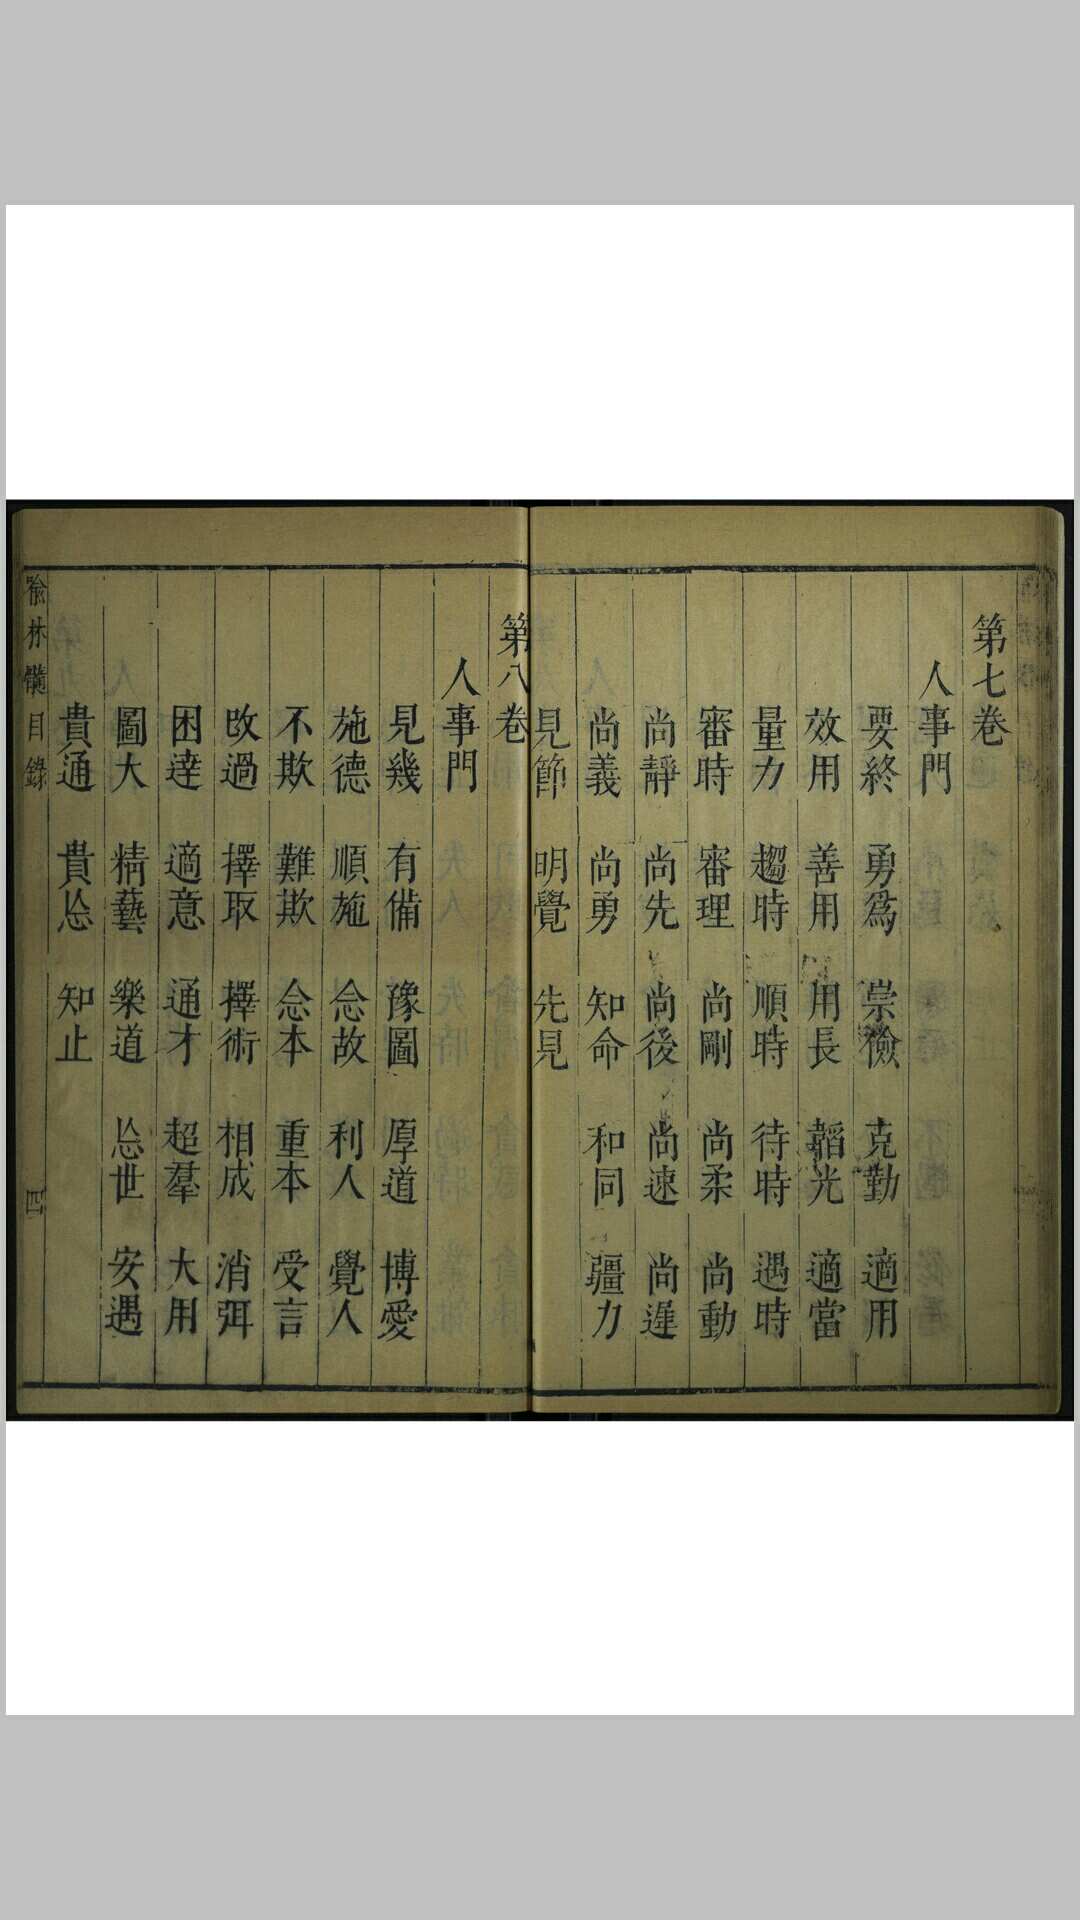 第七卷
人事門
要終 勇為 崇儉 克勤 適用
效用 善用 用長 韜光 適當
量力 趨時 順時 待時 遇時
審時 審理 尚剛 尚柔 尚動
尚靜 尚先 尚後 尚速 尚遲
尚義 尚勇 知命 和同 疆力
見節 明覺 先見
第八卷
人事門
見幾 有備 豫圖 厚道 博愛
施德 順施 念故 利人 覺人
不欺 難欺 念本 重本 受言
改過 擇取 擇術 相成 消弭
困達 適意 通才 超羣 大用
圖大 精藝 樂道 忘世 安遇
貴通 貴忘 知止
喻林髓 目錄 四